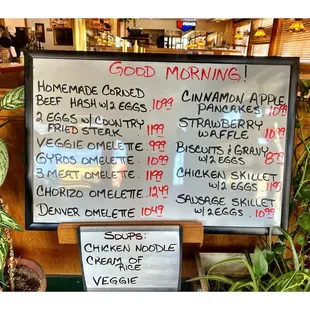 GOOD MORNING!
HOMEMADE CORNED
BEEF HASH W/2 EGGS 10.99
2 EGGS W/ COUNTRY
FRIED STEAK 11.99
VEGGIE OMELETTE 9.99
GYROS OMELETTE 10.99
3 MEAT OMELETTE 11.99
CHORIZO OMELETTE 12.49
DENVER OMELETTE 10.49
CINNAMON APPLE
PANCAKES 10.99
STRAWBERRY
WAFFLE 10.99
BISCUITS & GRAVY
W/2 EGGS 8.79
CHICKEN SKILLET
W/2 EGGS 11.99
SAUSAGE SKILLET
W/2 EGGS 10.99
SOUPS:
CHICKEN NOODLE
CREAM OF
RICE
VEGGIE